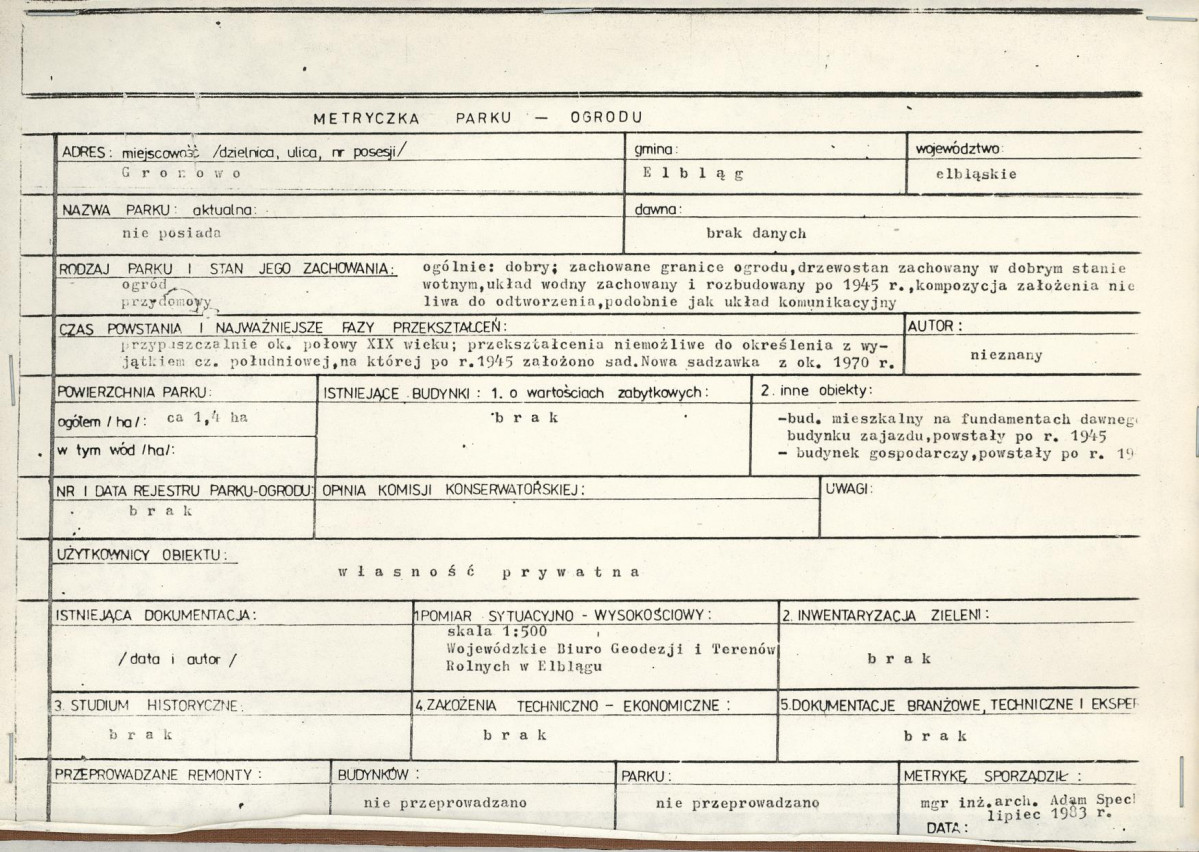 METRYCZKA PARKU — OGRODU
ADRES: miejscowność /dzielnica, ulica, nr posesji/
Gronowo
gmina:
Elbląg
województwo:
elbląskie
NAZWA PARKU: aktualna:
nie posiada
dawna:
brak danych
RODZAJ PARKU I STAN JEGO ZACHOWANIA:
ogród
przydomowy
ogólnie: dobry; zachowane granice ogrodu,drzewostan zachowany w dobrym stanie
wotnym,układ wodny zachowany i rozbudowany po 1945 r.,kompozycja założenia nie
liwa do odtworzenia,podobnie jak układ komunikacyjny
CZAS POWSTANIA I NAJWAŻNIEJSZE FAZY PRZEKSZTAŁCEŃ:
przypuszczalnie ok. połowy XIX wieku; przekształcenia niemożliwe do określenia z wy-
jątkiem cz. południowej,na której po r.1945 założono sad.Nowa sadzawka z ok. 1970 r.
AUTOR:
nieznany
POWIERZCHNIA PARKU:
ogółem /ha/: ca 1,4 ha
w tym wód /ha/:
ISTNIEJĄCE BUDYNKI: 1. o wartościach zabytkowych:
brak
2. inne obiekty:
-bud. mieszkalny na fundamentach dawneg
budynku zajazdu,powstały po r. 1945
- budynek gospodarczy,powstały po r. 19
NR I DATA REJESTRU PARKU-OGRODU:
brak
OPINIA KOMISJI KONSERWATORSKIEJ:
UWAGI:
UŻYTKOWNICY OBIEKTU:
własność prywatna
ISTNIEJĄCA DOKUMENTACJA:
/data i autor/
1 POMIAR SYTUACYJNO - WYSOKOŚCIOWY:
skala 1:500
Wojewódzkie Biuro Geodezji i Terenów
Rolnych w Elblągu
2. INWENTARYZACJA ZIELENI:
brak
3. STUDIUM HISTORYCZNE:
brak
4. ZAŁOŻENIA TECHNICZNO - EKONOMICZNE:
brak
5. DOKUMENTACJE BRANŻOWE, TECHNICZNE I EKSPER
brak
PRZEPROWADZANE REMONTY:
BUDYNKÓW:
nie przeprowadzano
PARKU:
nie przeprowadzano
METRYKĘ SPORZĄDZIŁ:
mgr inż.arch. Adam Spec
lipiec 1983 r.
DATA: